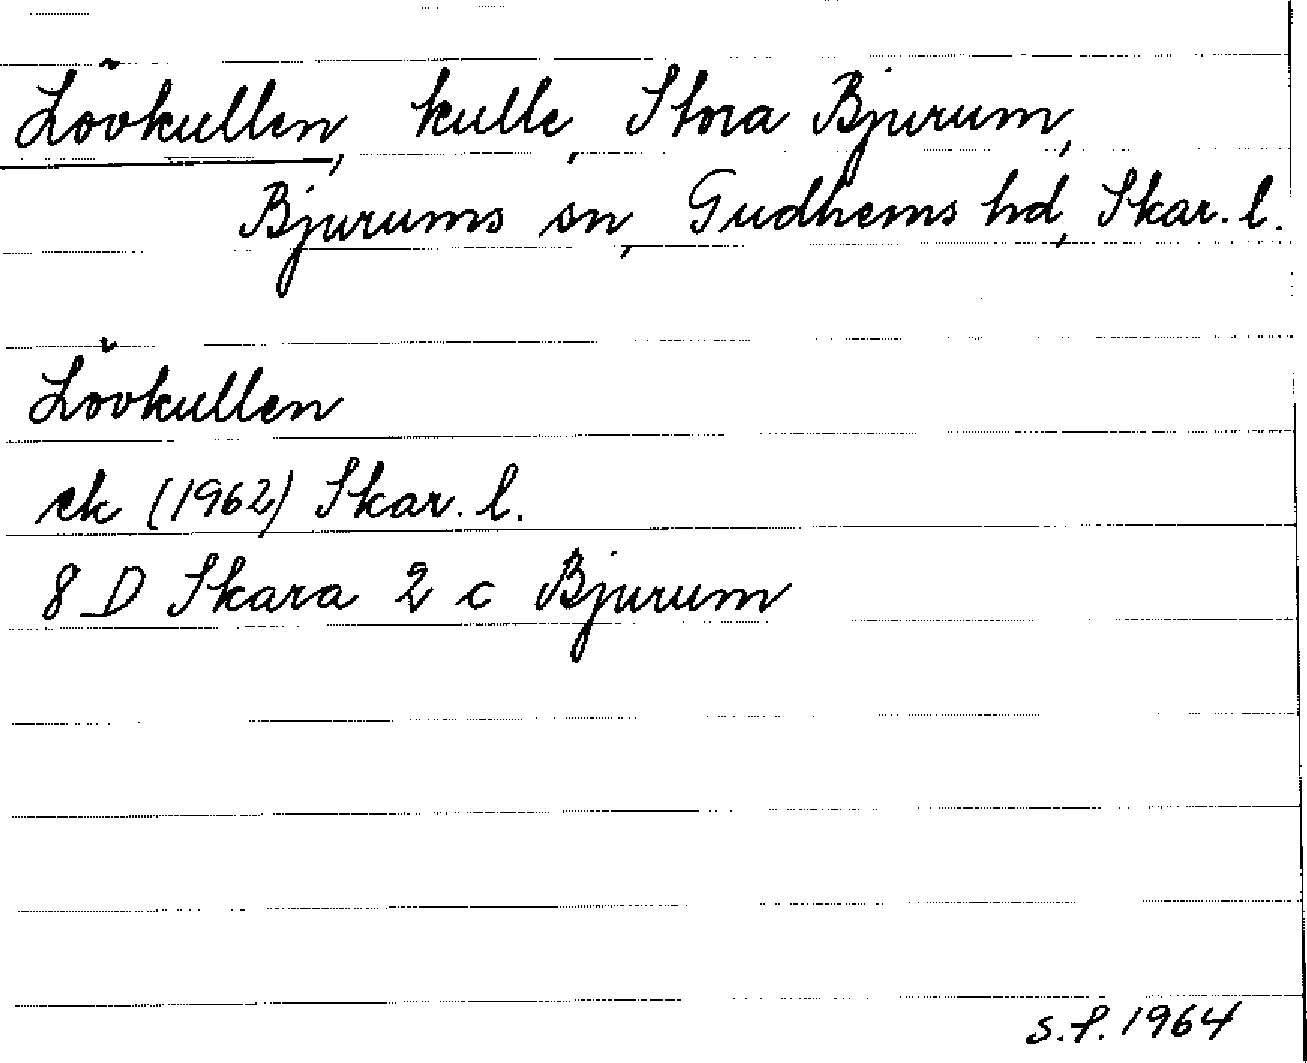 Lövkullen, kulle, Stora Bjurum,
Bjurums sn, Gudhems hd, Skar. l.
Lövkullen
ek (1962) Skar. l.
8 D Skara 2 c Bjurum
S.P. 1964